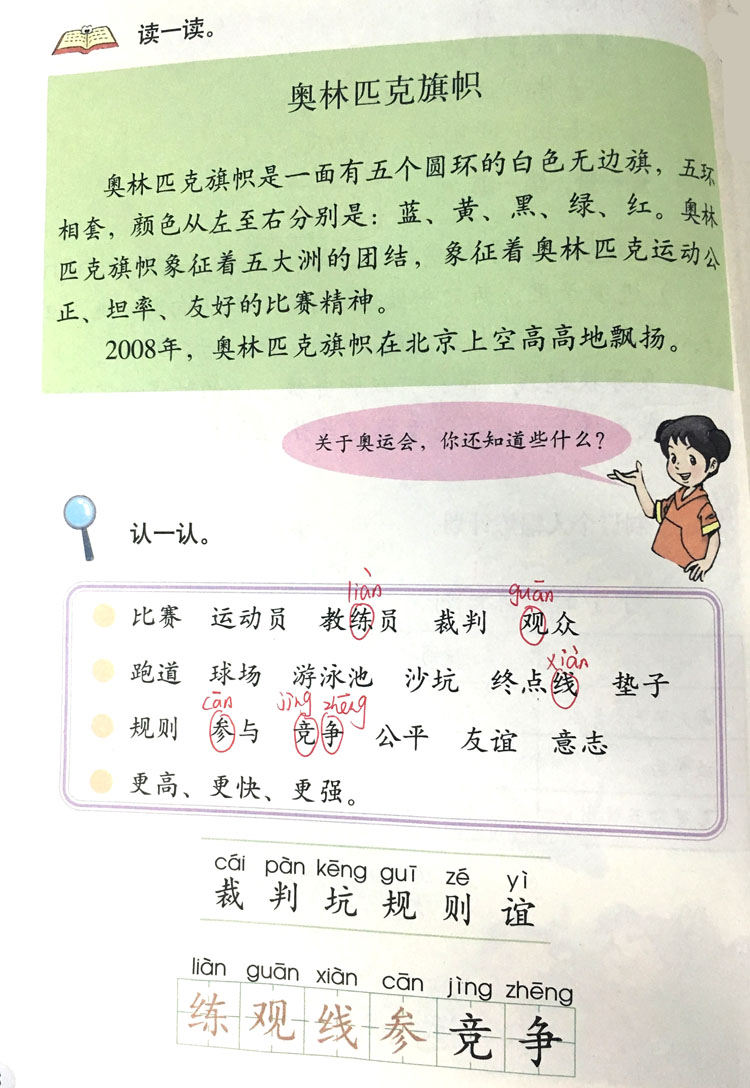 读一读。
奥林匹克旗帜
奥林匹克旗帜是一面有五个圆环的白色无边旗，五环
相套，颜色从左至右分别是：蓝、黄、黑、绿、红。奥林
匹克旗帜象征着五大洲的团结，象征着奥林匹克运动公
正、坦率、友好的比赛精神。
2008年，奥林匹克旗帜在北京上空高高地飘扬。
关于奥运会，你还知道些什么？
认一认。
liàn guān
比赛 运动员 教练员 裁判 观众
xiàn
跑道 球场 游泳池 沙坑 终点线 垫子
cān jìng zhēng
规则 参与 竞争 公平 友谊 意志
更高、更快、更强。
cái pàn kēng guī zé yì
裁 判 坑 规 则 谊
liàn guān xiàn cān jìng zhēng
练 观 线 参 竞 争